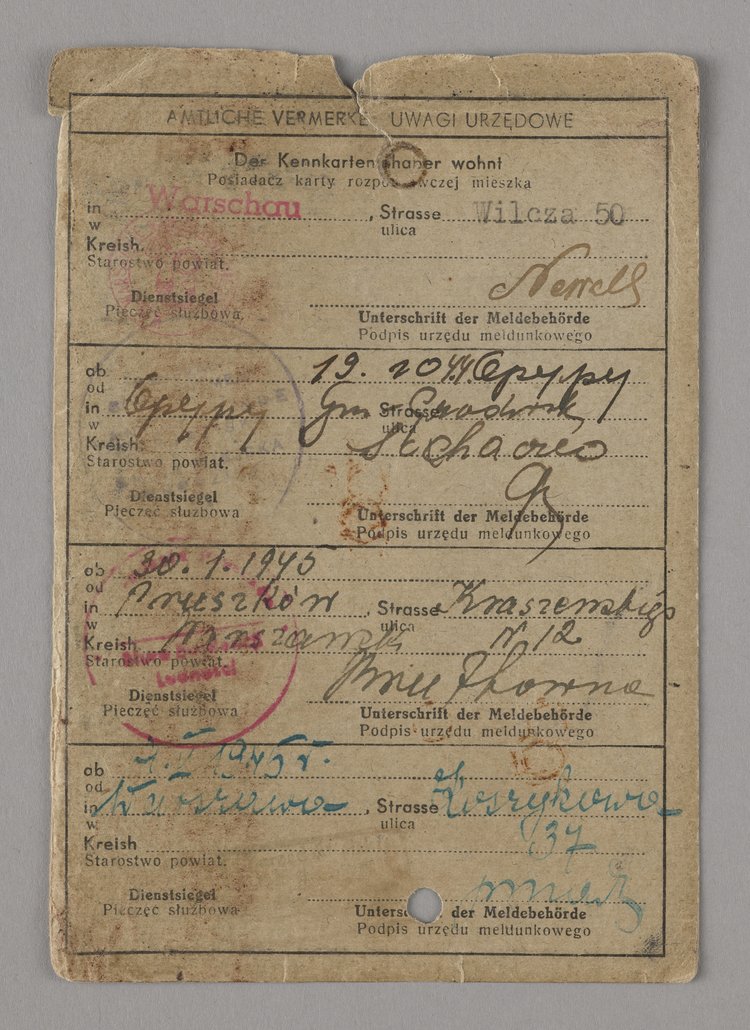 AMTLICHE VERMERKE UWAGI URZĘDOWE
Der Kennkarten haber wohnt
Posiadacz karty rozpo wczej mieszka
in Warschau, Strasse Wilcza 50
w ulica
Kreish.
Starostwo powiat.
Dienstsiegel Unterschrift der Meldebehörde
Pieczęć służbowa Podpis urzędu meldunkowego
ab 19. 10 44.
od
in Strasse
w ulica
Kreish.
Starostwo powiat.
Dienstsiegel Unterschrift der Meldebehörde
Pieczęć służbowa Podpis urzędu meldunkowego
ab 30. 1. 1945
od
in Pruszków, Strasse Kraszewskiego
w ulica
Kreish. Warszawski N 12
Starostwo powiat.
Ludności
Dienstsiegel Unterschrift der Meldebehörde
Pieczęć służbowa Podpis urzędu meldunkowego
ab 1945 r.
od
in Warszawa, Strasse Koszykowa
w ulica 37
Kreish
Starostwo powiat.
Dienstsiegel Unters der Meldebehörde
Pieczęć służbowa Podpis urzędu meldunkowego